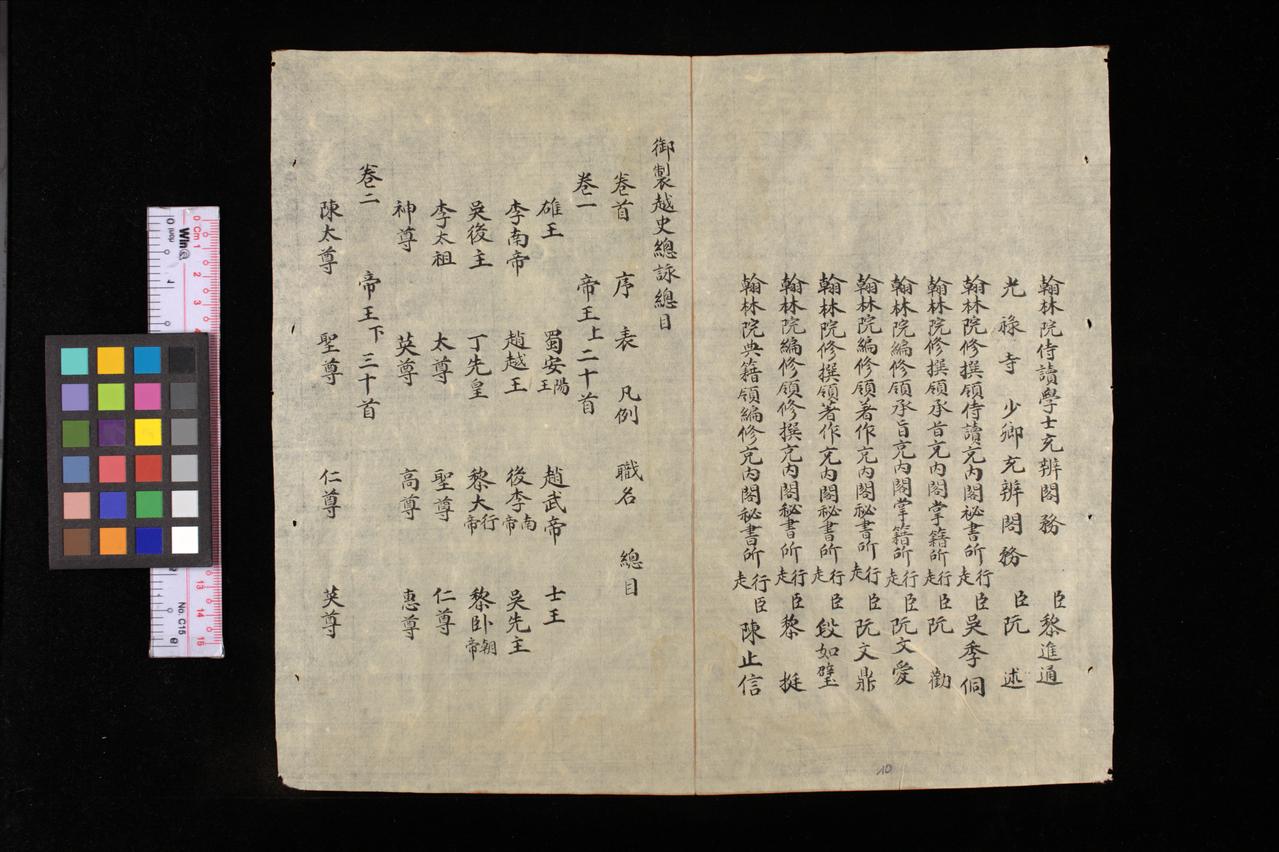 翰林院侍讀學士充辨閣務 臣黎進通
光祿寺少卿充辨閣務 臣阮 述
翰林院修撰領侍讀充內閣秘書所行走臣吳季侗
翰林院修撰領承旨充內閣掌籍所行走臣阮 勸
翰林院編修領承旨充內閣掌籍所行走臣阮文愛
翰林院編修領著作充內閣秘書所行走臣阮文鼎
翰林院修撰領著作充內閣秘書所行走臣段如璧
翰林院編修領修撰充內閣秘書所行走臣黎 挺
翰林院典籍領編修充內閣秘書所行走臣陳止信
10
御製越史總詠總目
卷首 序 表 凡例 職名 總目
卷一 帝王上 二十首
雄王 蜀安陽王 趙武帝 士王
李南帝 趙越王 後李南帝 吳先主
吳後主 丁先皇 黎大行帝 黎卧朝帝
李太祖 太尊 聖尊 仁尊
神尊 英尊 高尊 惠尊
卷二 帝王下 三十首
陳太尊 聖尊 仁尊 英尊
0 Cm 1 2 3
13 14 15
No. C15